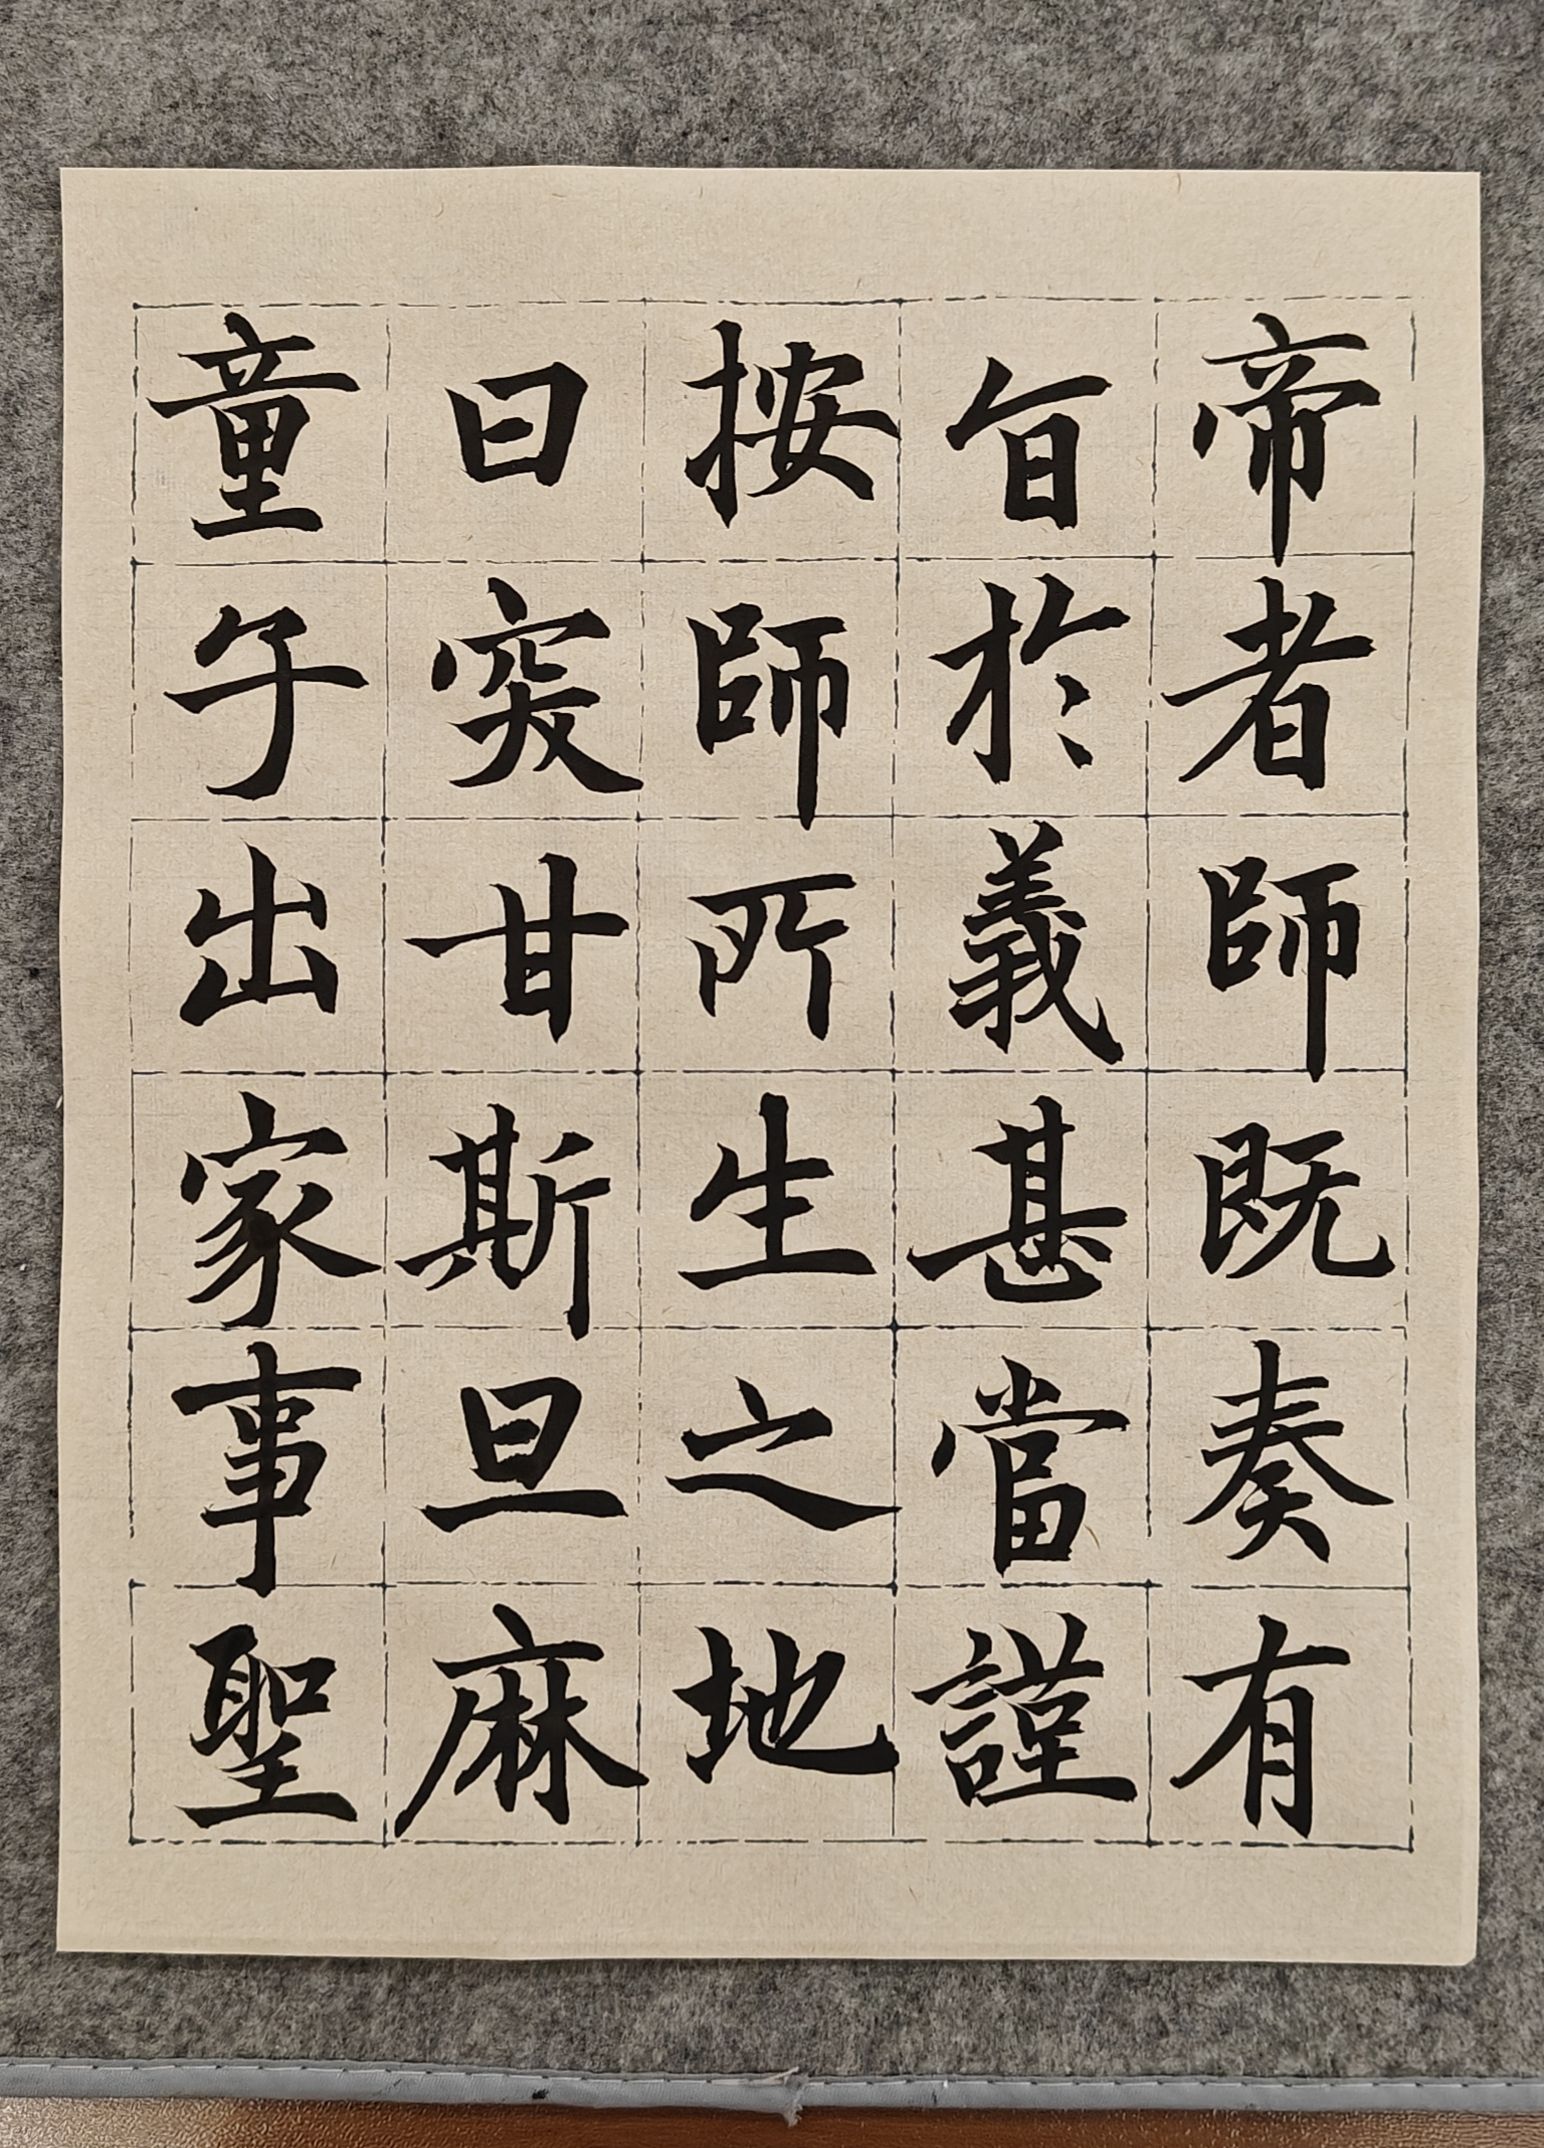 帝者師既奏有
旨於義甚當謹
按師所生之地
曰突甘斯旦麻
童子出家事聖